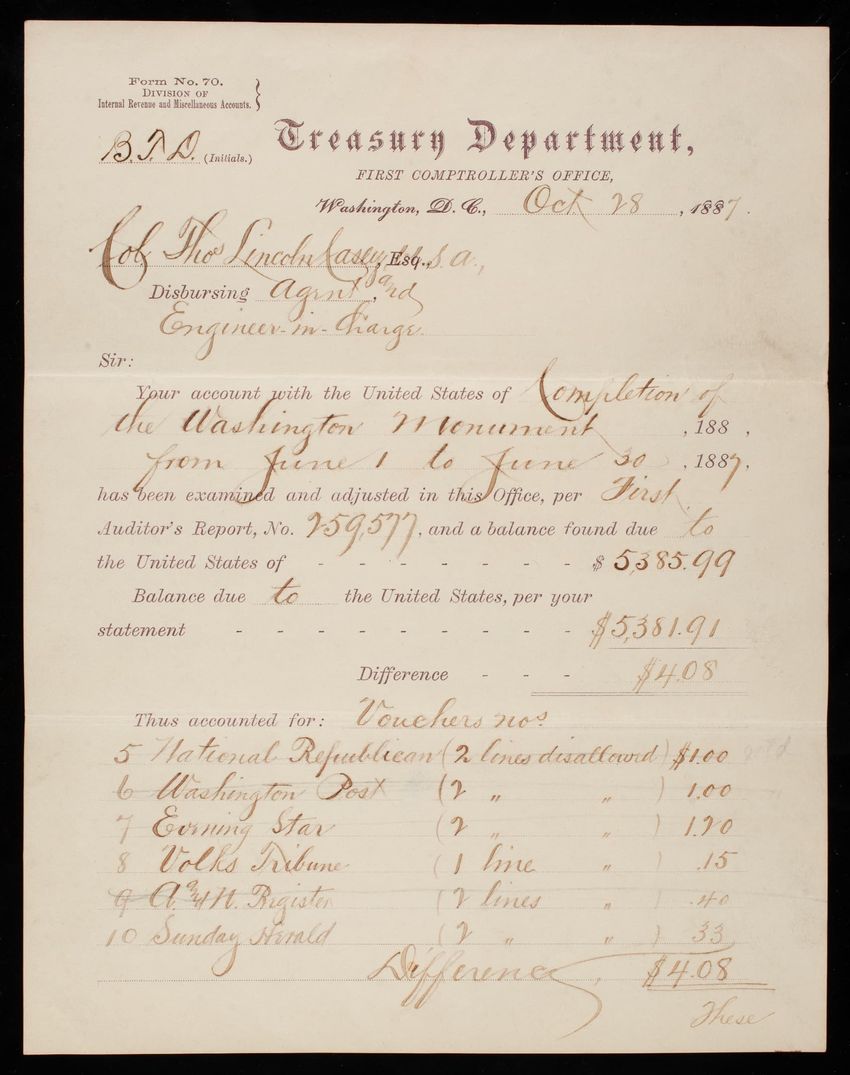 Form No. 70.
DIVISION OF
Internal Revenue and Miscellaneous Accounts.
B.T.D. (Initials.)
Treasury Department,
FIRST COMPTROLLER'S OFFICE,
Washington, D. C., Oct 28, 1887.
Col Thos Lincoln Casey, Esq., U.S.A.,
Disbursing Agent, and
Engineer-in-Charge.
Sir:
Your account with the United States of Completion of
the Washington Monument, 188 ,
from June 1 to June 30, 1887,
has been examined and adjusted in this Office, per First
Auditor's Report, No. 259,577, and a balance found due to
the United States of - - - - - - - $ 5,385.99
Balance due to the United States, per your
statement - - - - - - - - - $5,381.91
Difference - - - $4.08
Thus accounted for: Vouchers nos.
5 National Republican (2 lines disallowed) $1.00
6 Washington Post (2 " " ) 1.00
7 Evening Star (2 " " ) 1.20
8 Volks Tribune (1 line " ) .15
9 A. and N. Register (2 lines " ) .40
10 Sunday Herald (2 " " ) 33
Difference, $4.08
These